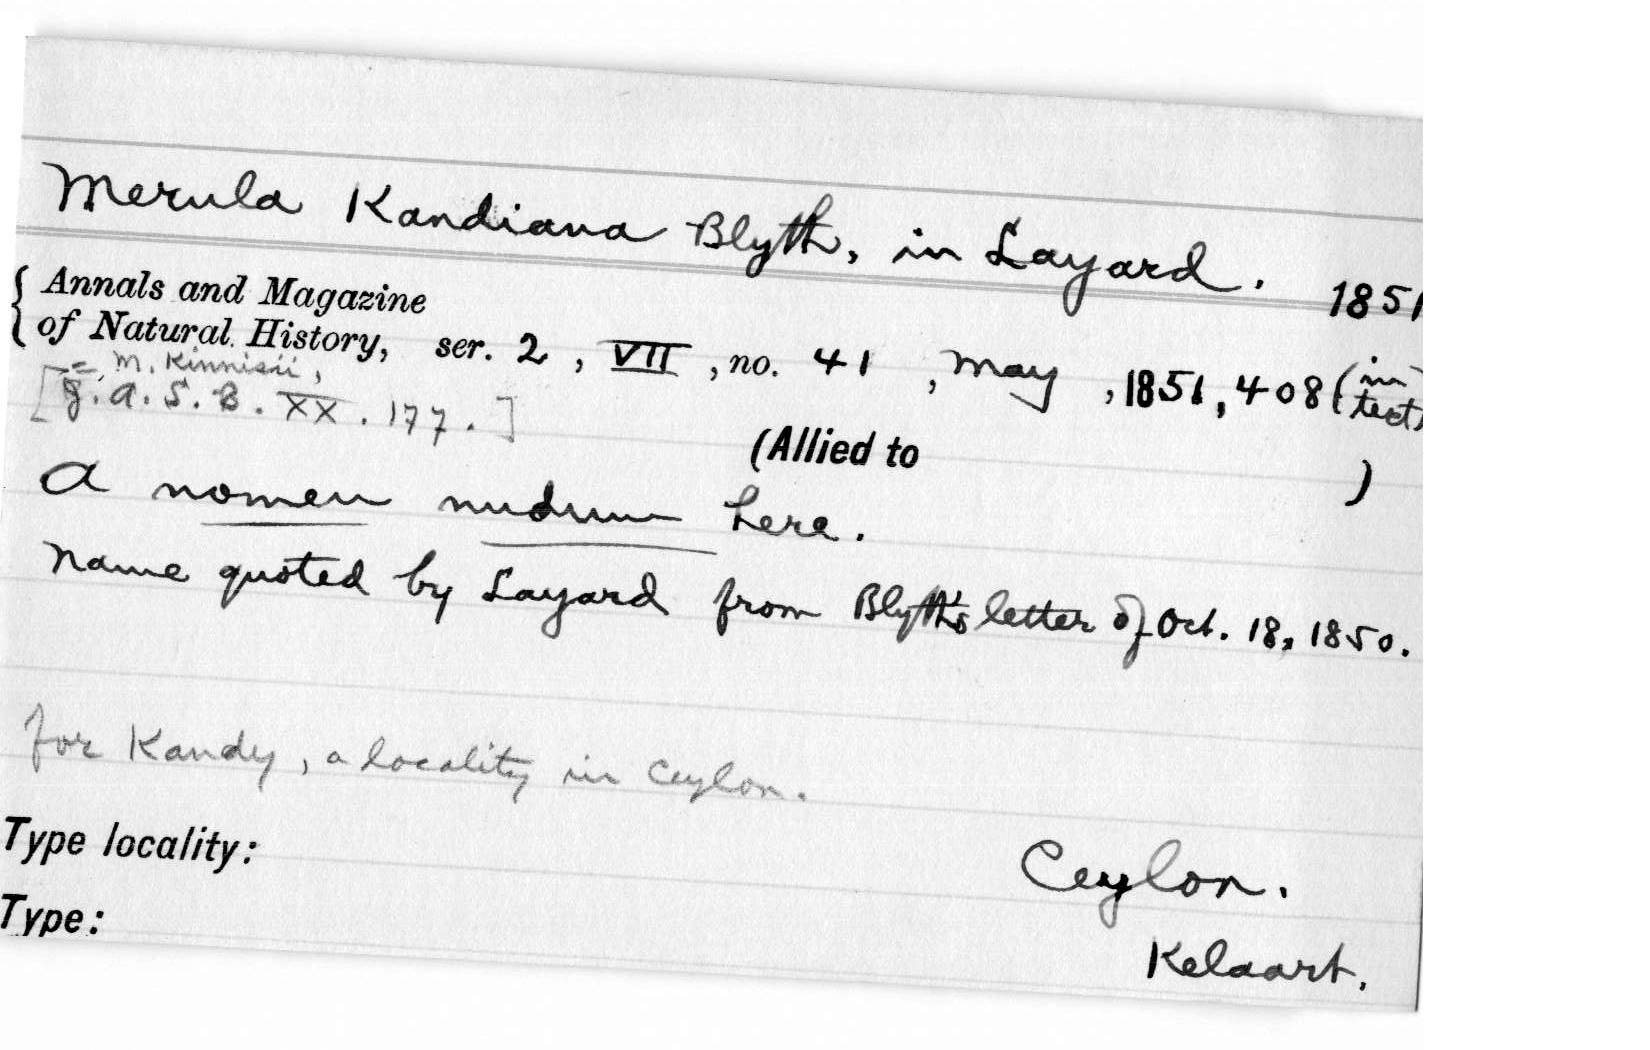 Merula Kandiana Blyth, in Layard. 1851
{ Annals and Magazine
of Natural History, ser. 2, VII, no. 41, May, 1851, 408 (in text)
= M. Kinnisii,
[J. A. S. B. XX. 177.]
(Allied to )
A nomen nudum here.
Name quoted by Layard from Blyth's letter of Oct. 18, 1850.
for Kandy, a locality in Ceylon.
Type locality: Ceylon.
Type: Kelaart.